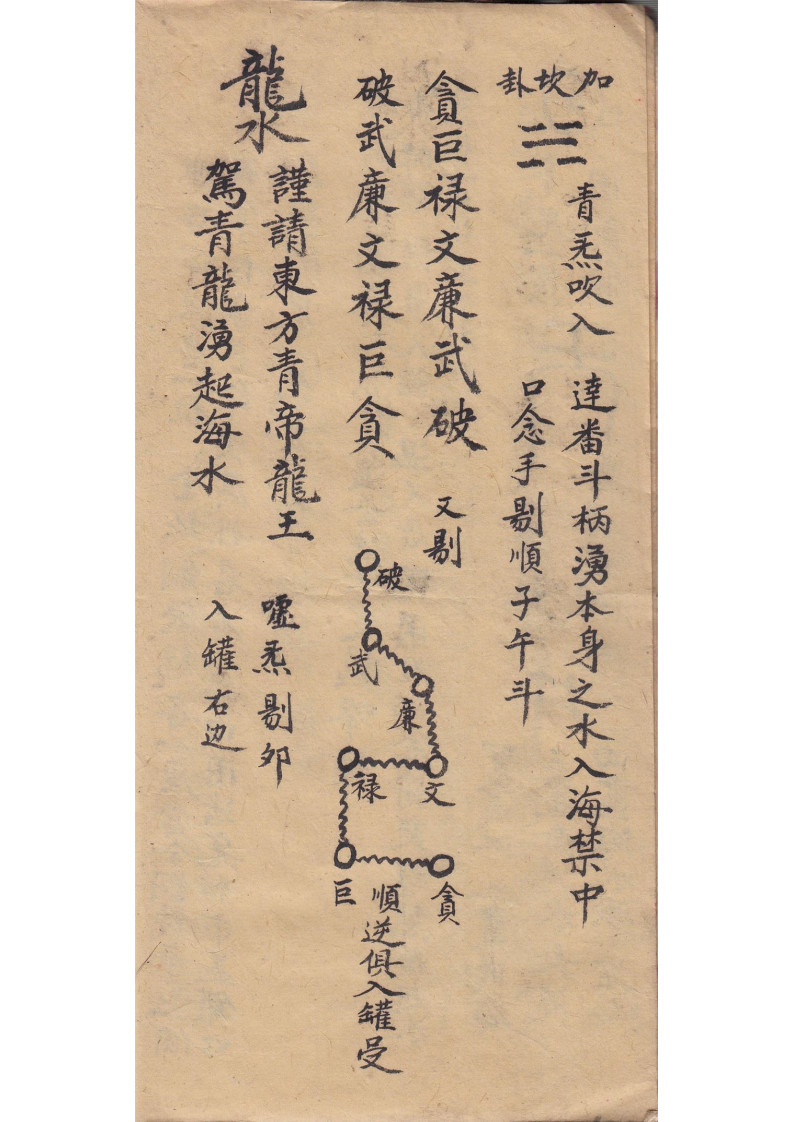 加坎卦
青炁吹入
逹番斗柄湧本身之水入海禁中
口念手剔順子午斗
貪巨禄文廉武破
又剔
破武廉文禄巨貪
破
武
廉
文
禄
巨
貪
順逆俱入罐受
龍水
謹請東方青帝龍王
嘘炁剔卯
駕青龍湧起海水
入罐右边